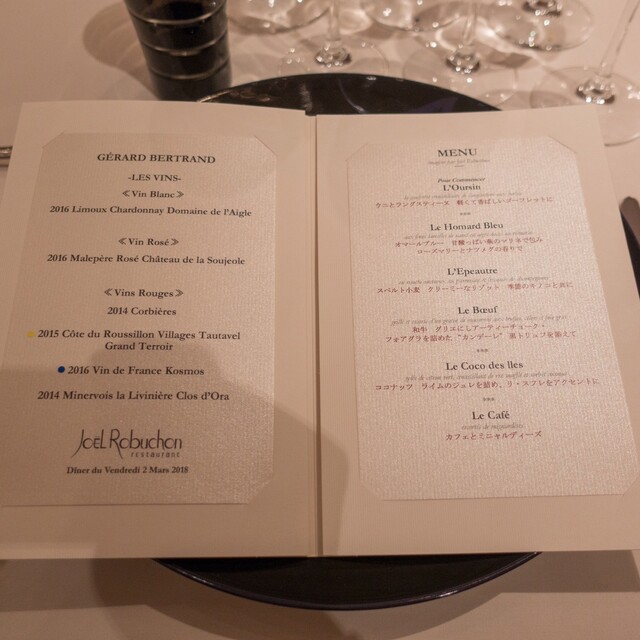 GÉRARD BERTRAND
-LES VINS-
≪Vin Blanc≫
2016 Limoux Chardonnay Domaine de l'Aigle
≪Vin Rosé≫
2016 Malepère Rosé Château de la Soujeole
≪Vins Rouges≫
2014 Corbières
2015 Côte du Roussillon Villages Tautavel
Grand Terroir
2016 Vin de France Kosmos
2014 Minervois la Livinière Clos d'Ora
JOËL Robuchon
restaurant
Dîner du Vendredi 2 Mars 2018
MENU
imaginé par Joël Robuchon
Pour Commencer
L'Oursin
ウニとラングスティーヌ 軽くて香ばしいゴーフレットに
***
Le Homard Bleu
オマールブルー 甘酸っぱい蕪のマリネで包み
ローズマリーとナツメグの香りで
L'Epeautre
スペルト小麦 クリーミーなリゾット 季節のキノコと共に
Le Bœuf
和牛 グリエにしアーティーチョーク・
フォアグラを詰めた "カンデーレ" 黒トリュフを添えて
***
Le Coco des îles
ココナッツ ライムのジュレを詰め、リ・スフレをアクセントに
***
Le Café
escorté de mignardises
カフェとミニャルディーズ